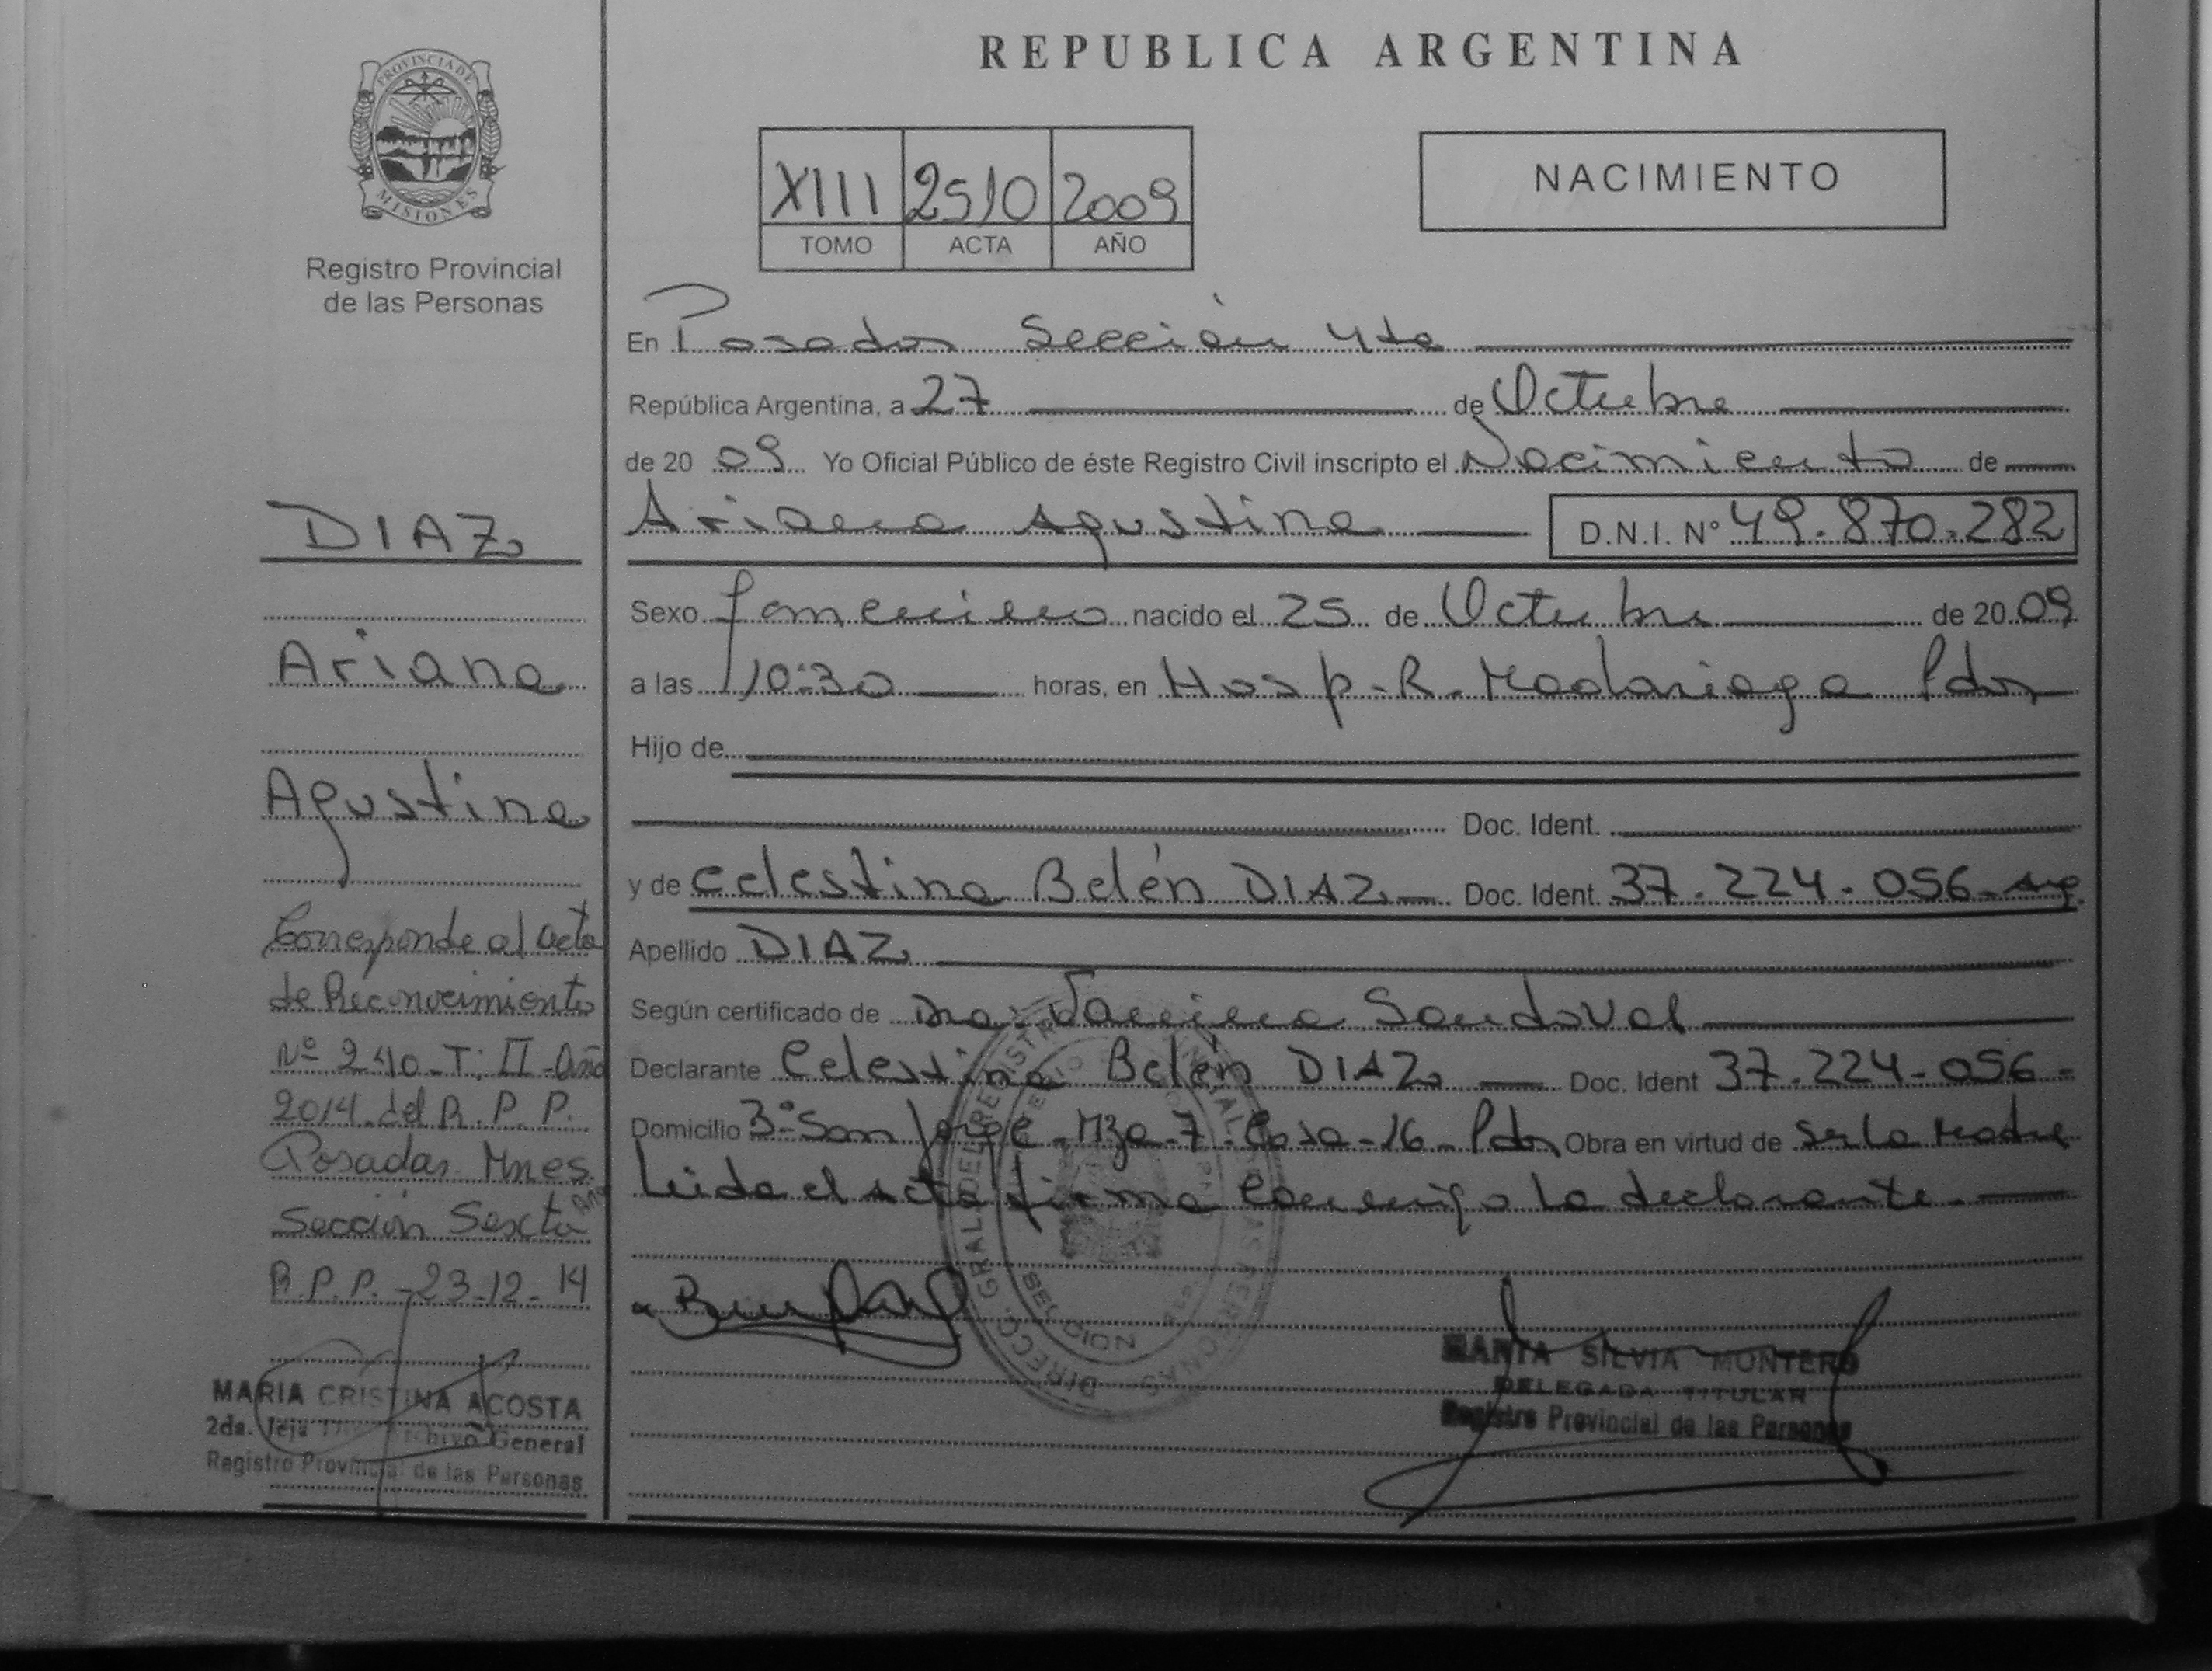 PROVINCIA DE
MISIONES
Registro Provincial
de las Personas
DIAZ
Ariana
Agustina
Corresponde al acta
de Reconocimiento
Nº 240-T: II-Año
2014 del R.P.P.
Posadas Mnes.
Sección Sexta
R.P.P. - 23-12-14
MARIA CRISTINA ACOSTA
2da. Archivo General
Registro Provincial de las Personas
REPUBLICA ARGENTINA
XIII 2510 2009
TOMO ACTA AÑO
NACIMIENTO
En Posadas Sección 4ta
República Argentina, a 27 de Octubre
de 20 09 Yo Oficial Público de éste Registro Civil inscripto el Nacimiento de
Ariana Agustina D.N.I. Nº 49.870.282
Sexo femenino nacido el 25 de Octubre de 20 09
a las 10:30 horas, en Hosp. R. Madariaga Pdas
Hijo de
Doc. Ident.
y de Celestina Belén DIAZ Doc. Ident. 37.224.056- Arg.
Apellido DIAZ
Según certificado de Dra. Sandoval
Declarante Celestina Belén DIAZ Doc. Ident 37.224-056-
Domicilio Bº San Jorge - Mza-7-Casa-16- Pdas Obra en virtud de Ser la Madre
Leida el acta firma conmigo la declarante.-
MARTA SILVIA MONTERO
DELEGADA TITULAR
Registro Provincial de las Personas